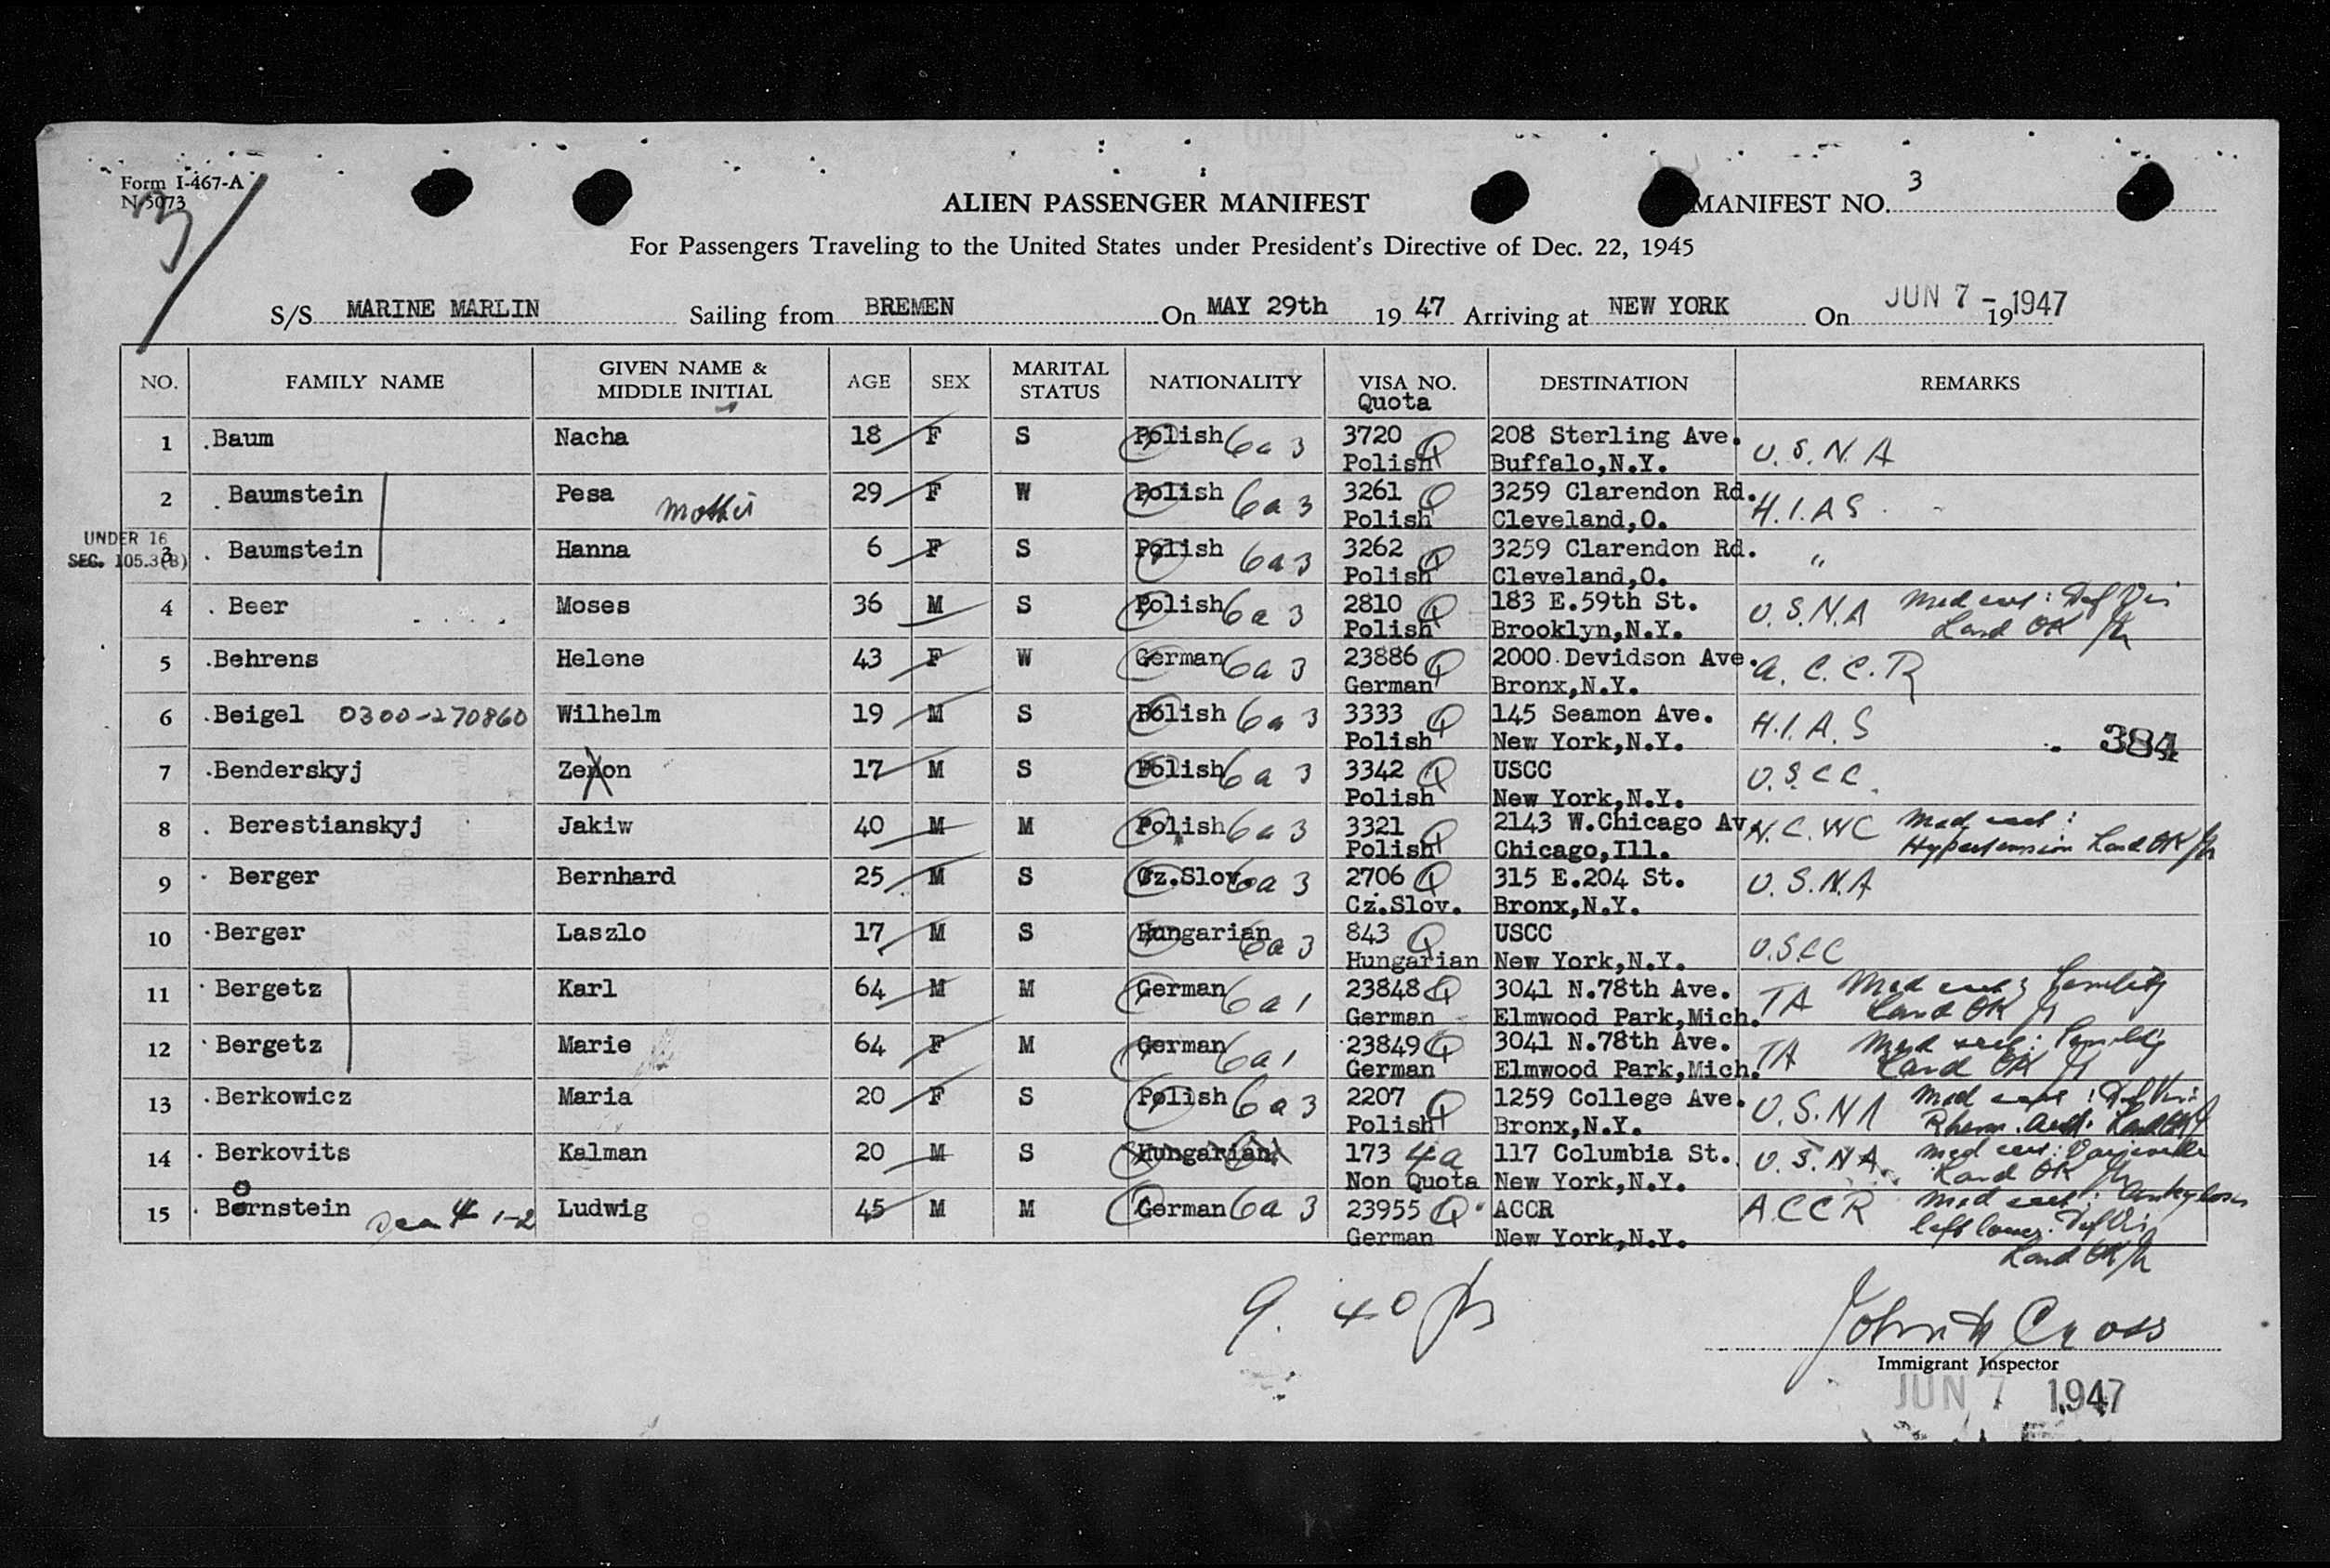 Form I-467-A
N-5073
3
ALIEN PASSENGER MANIFEST
MANIFEST NO. 3
For Passengers Traveling to the United States under President's Directive of Dec. 22, 1945
S/S MARINE MARLIN Sailing from BREMEN On MAY 29th 19 47 Arriving at NEW YORK On JUN 7 - 1947 19
NO. FAMILY NAME GIVEN NAME & MIDDLE INITIAL AGE SEX MARITAL STATUS NATIONALITY VISA NO. Quota DESTINATION REMARKS
1 Baum Nacha 18 F S Polish 6a3 3720 Q 208 Sterling Ave. U.S.N.A
Polish Buffalo,N.Y.
2 Baumstein Pesa mother 29 F W Polish 6a3 3261 Q 3259 Clarendon Rd. H.I.A.S
Polish Cleveland,O.
UNDER 16
SEC. 105.3(B)
3 Baumstein Hanna 6 F S Polish 6a3 3262 Q 3259 Clarendon Rd. "
Polish Cleveland,O.
4 Beer Moses 36 M S Polish 6a3 2810 Q 183 E.59th St. U.S.N.A Med cert: Def Vis
Polish Brooklyn,N.Y. Land OK
5 Behrens Helene 43 F W German 6a3 23886 Q 2000 Devidson Ave. A.C.C.R
German Bronx,N.Y.
6 Beigel 0300-270860 Wilhelm 19 M S Polish 6a3 3333 Q 145 Seamon Ave. H.I.A.S
Polish New York,N.Y. 384
7 Benderskyj Zenon 17 M S Polish 6a3 3342 Q USCC U.S.C.C.
Polish New York,N.Y.
8 Berestianskyj Jakiw 40 M M Polish 6a3 3321 Q 2143 W.Chicago Av. N.C.WC Med cert:
Polish Chicago,Ill. Hypertension Land OK
9 Berger Bernhard 25 M S Cz.Slov. 6a3 2706 Q 315 E.204 St. U.S.N.A
Cz.Slov. Bronx,N.Y.
10 Berger Laszlo 17 M S Hungarian 6a3 843 Q USCC U.S.C.C
Hungarian New York,N.Y.
11 Bergetz Karl 64 M M German 6a1 23848 Q 3041 N.78th Ave. TA Med cert: Senility
German Elmwood Park,Mich. Land OK
12 Bergetz Marie 64 F M German 6a1 23849 Q 3041 N.78th Ave. TA Med cert: Senility
German Elmwood Park,Mich. Land OK
13 Berkowicz Maria 20 F S Polish 6a3 2207 Q 1259 College Ave. U.S.NA Med cert: Def Vis
Polish Bronx,N.Y. Land OK
14 Berkovits Kalman 20 M S Hungarian 173 4a 117 Columbia St. U.S.NA. Med cert: Varicocele
Non Quota New York,N.Y. Land OK
15 Bernstein o 1-2 Ludwig 45 M M German 6a3 23955 Q ACCR A.C.C.R Med cert: Ankylosis
German New York,N.Y. left lower. Def Vis
Land OK
9. 40
John H Cross
Immigrant Inspector
JUN 7 1947